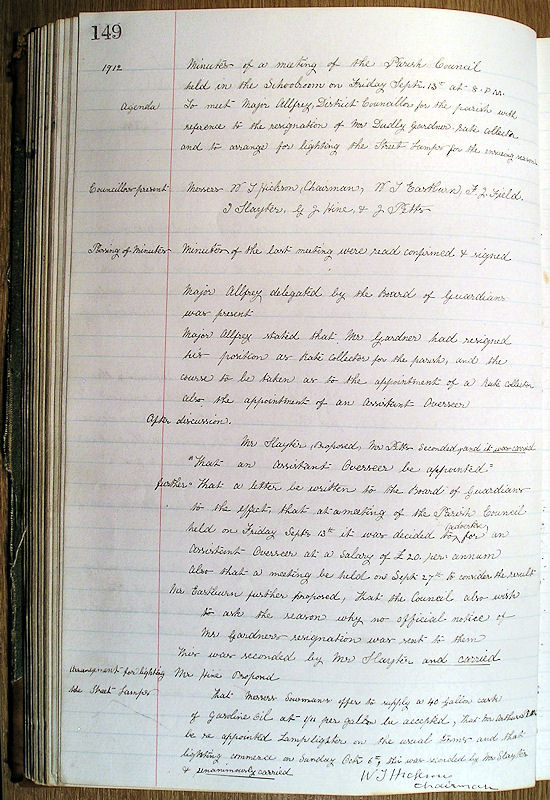 149
1912
Minutes of a meeting of the Parish Council
held in the Schoolroom on Friday Sept. 13th at 8. p.m.
Agenda To meet Major Allfrey, District Councillor for the parish with
reference to the resignation of Mr Dudley Gardner, Rate collector
and to arrange for lighting the Street Lamps for the ensuing season
Councillors present Messrs W T Hickson, Chairman, W T Eastburn, F J Field.
T Slayter, G J Hine, & J Petts
Passing of Minutes Minutes of the last meeting were read confirmed & signed
Major Allfrey delegated by the Board of Guardians
was present
Major Allfrey stated that Mr Gardner had resigned
his position as Rate collector for the parish, and the
course to be taken as to the appointment of a Rate collector
also the appointment of an Assistant Overseer
After discussion.
Mr Slayter, Proposed, Mr Petts seconded, and it was carried
"That an Assistant Overseer be appointed"
further "That a letter be written to the Board of Guardians
to the effect that at a meeting of the Parish Council
held on Friday Sept. 13th it was decided to advertise for an
Assistant Overseer at a Salary of £20. per annum
Also that a meeting be held on Sept 27th to consider the result
Mr Eastburn further proposed, that the Council also wish
to ask the reason why no official notice of
Mr Gardners resignation was sent to them
This was seconded by Mr Slayter and carried
Arrangement for lighting Mr Hine Proposed
the Street Lamps
That Messrs offer to supply a 40 Gallon cask
of Gasoline Oil at 1/11 per gallon be accepted, That Mr
be re appointed Lamplighter on the usual terms and that
lighting commence on Sunday Oct 6th, this was seconded by Mr Slayter
& unanimously carried
W T Hickson
Chairman